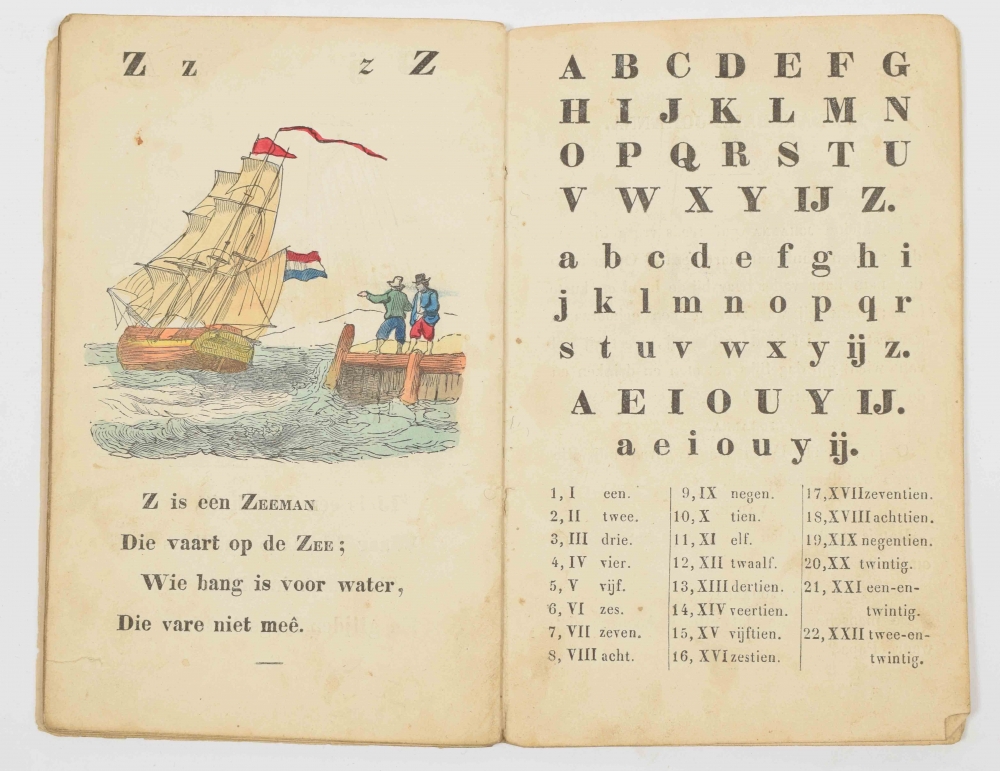 Z z z Z
Z is een ZEEMAN
Die vaart op de ZEE;
Wie bang is voor water,
Die vare niet meê.
A B C D E F G
H I J K L M N
O P Q R S T U
V W X Y IJ Z.
a b c d e f g h i
j k l m n o p q r
s t u v w x y ij z.
A E I O U Y IJ.
a e i o u y ij.
1, I een.
2, II twee.
3, III drie.
4, IV vier.
5, V vijf.
6, VI zes.
7, VII zeven.
8, VIII acht.
9, IX negen.
10, X tien.
11, XI elf.
12, XII twaalf.
13, XIII dertien.
14, XIV veertien.
15, XV vijftien.
16, XVI zestien.
17, XVII zeventien.
18, XVIII achttien.
19, XIX negentien.
20, XX twintig.
21, XXI een-en-
twintig.
22, XXII twee-en-
twintig.